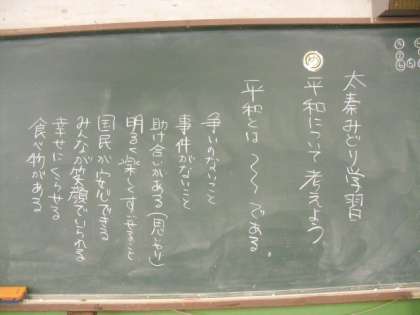 太秦みどり学習
め 平和について考えよう
平和とは 〜〜である。
争いのないこと
事件がないこと
助け合いがある(思いやり)
明るく楽しくすごせること
国民が安心できる
みんなが笑顔でいられる
幸せにくらせる
食べ物がある